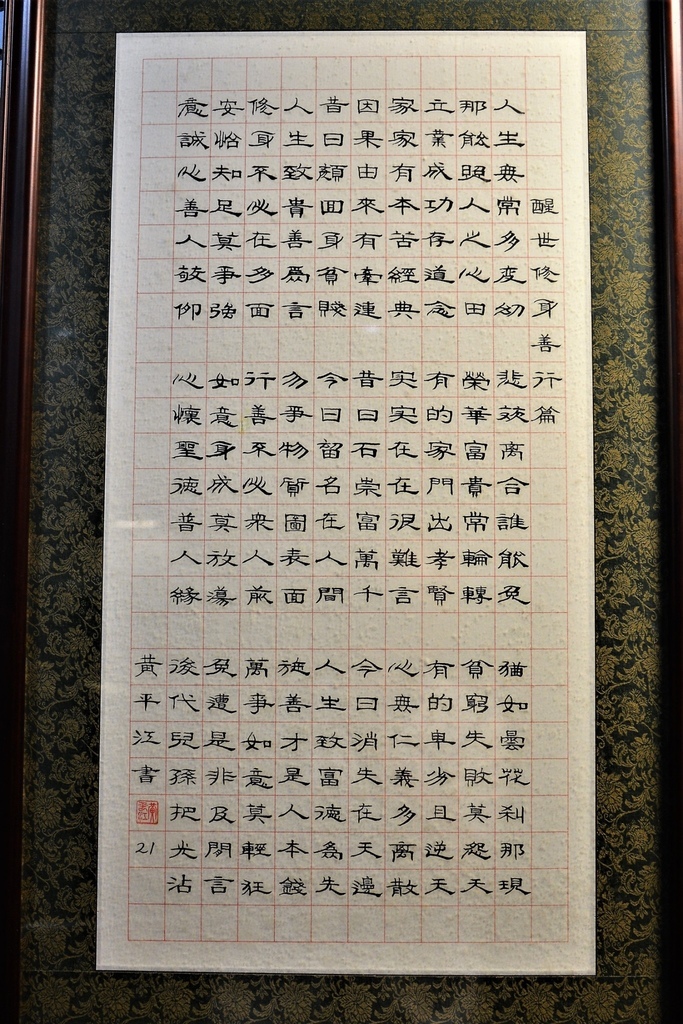 醒世修身善行篇
人生無常多变幻 悲欢离合誰能免 猶如曇花刹那現
那能照人之心田 榮華富貴常輪轉 貧窮失敗莫怨天
立業成功存道念 有的家門出孝賢 有的卑劣且逆天
家家有本苦經典 实实在在很難言 心無仁義多离散
因果由來有牽連 昔日石崇富萬千 今日消失在天邊
昔日顏回身貧賤 今日留名在人間 人生致富德為先
人生致貴善為言 勿爭物質圖表面 施善才是人本錢
修身不必在多面 行善不必衆人前 萬事如意莫輕狂
安恰知足莫爭強 如意身成莫放蕩 免遭是非及閒言
意誠心善人敬仰 心懷聖德普人緣 後代兒孫把光沾
黃平江書 21